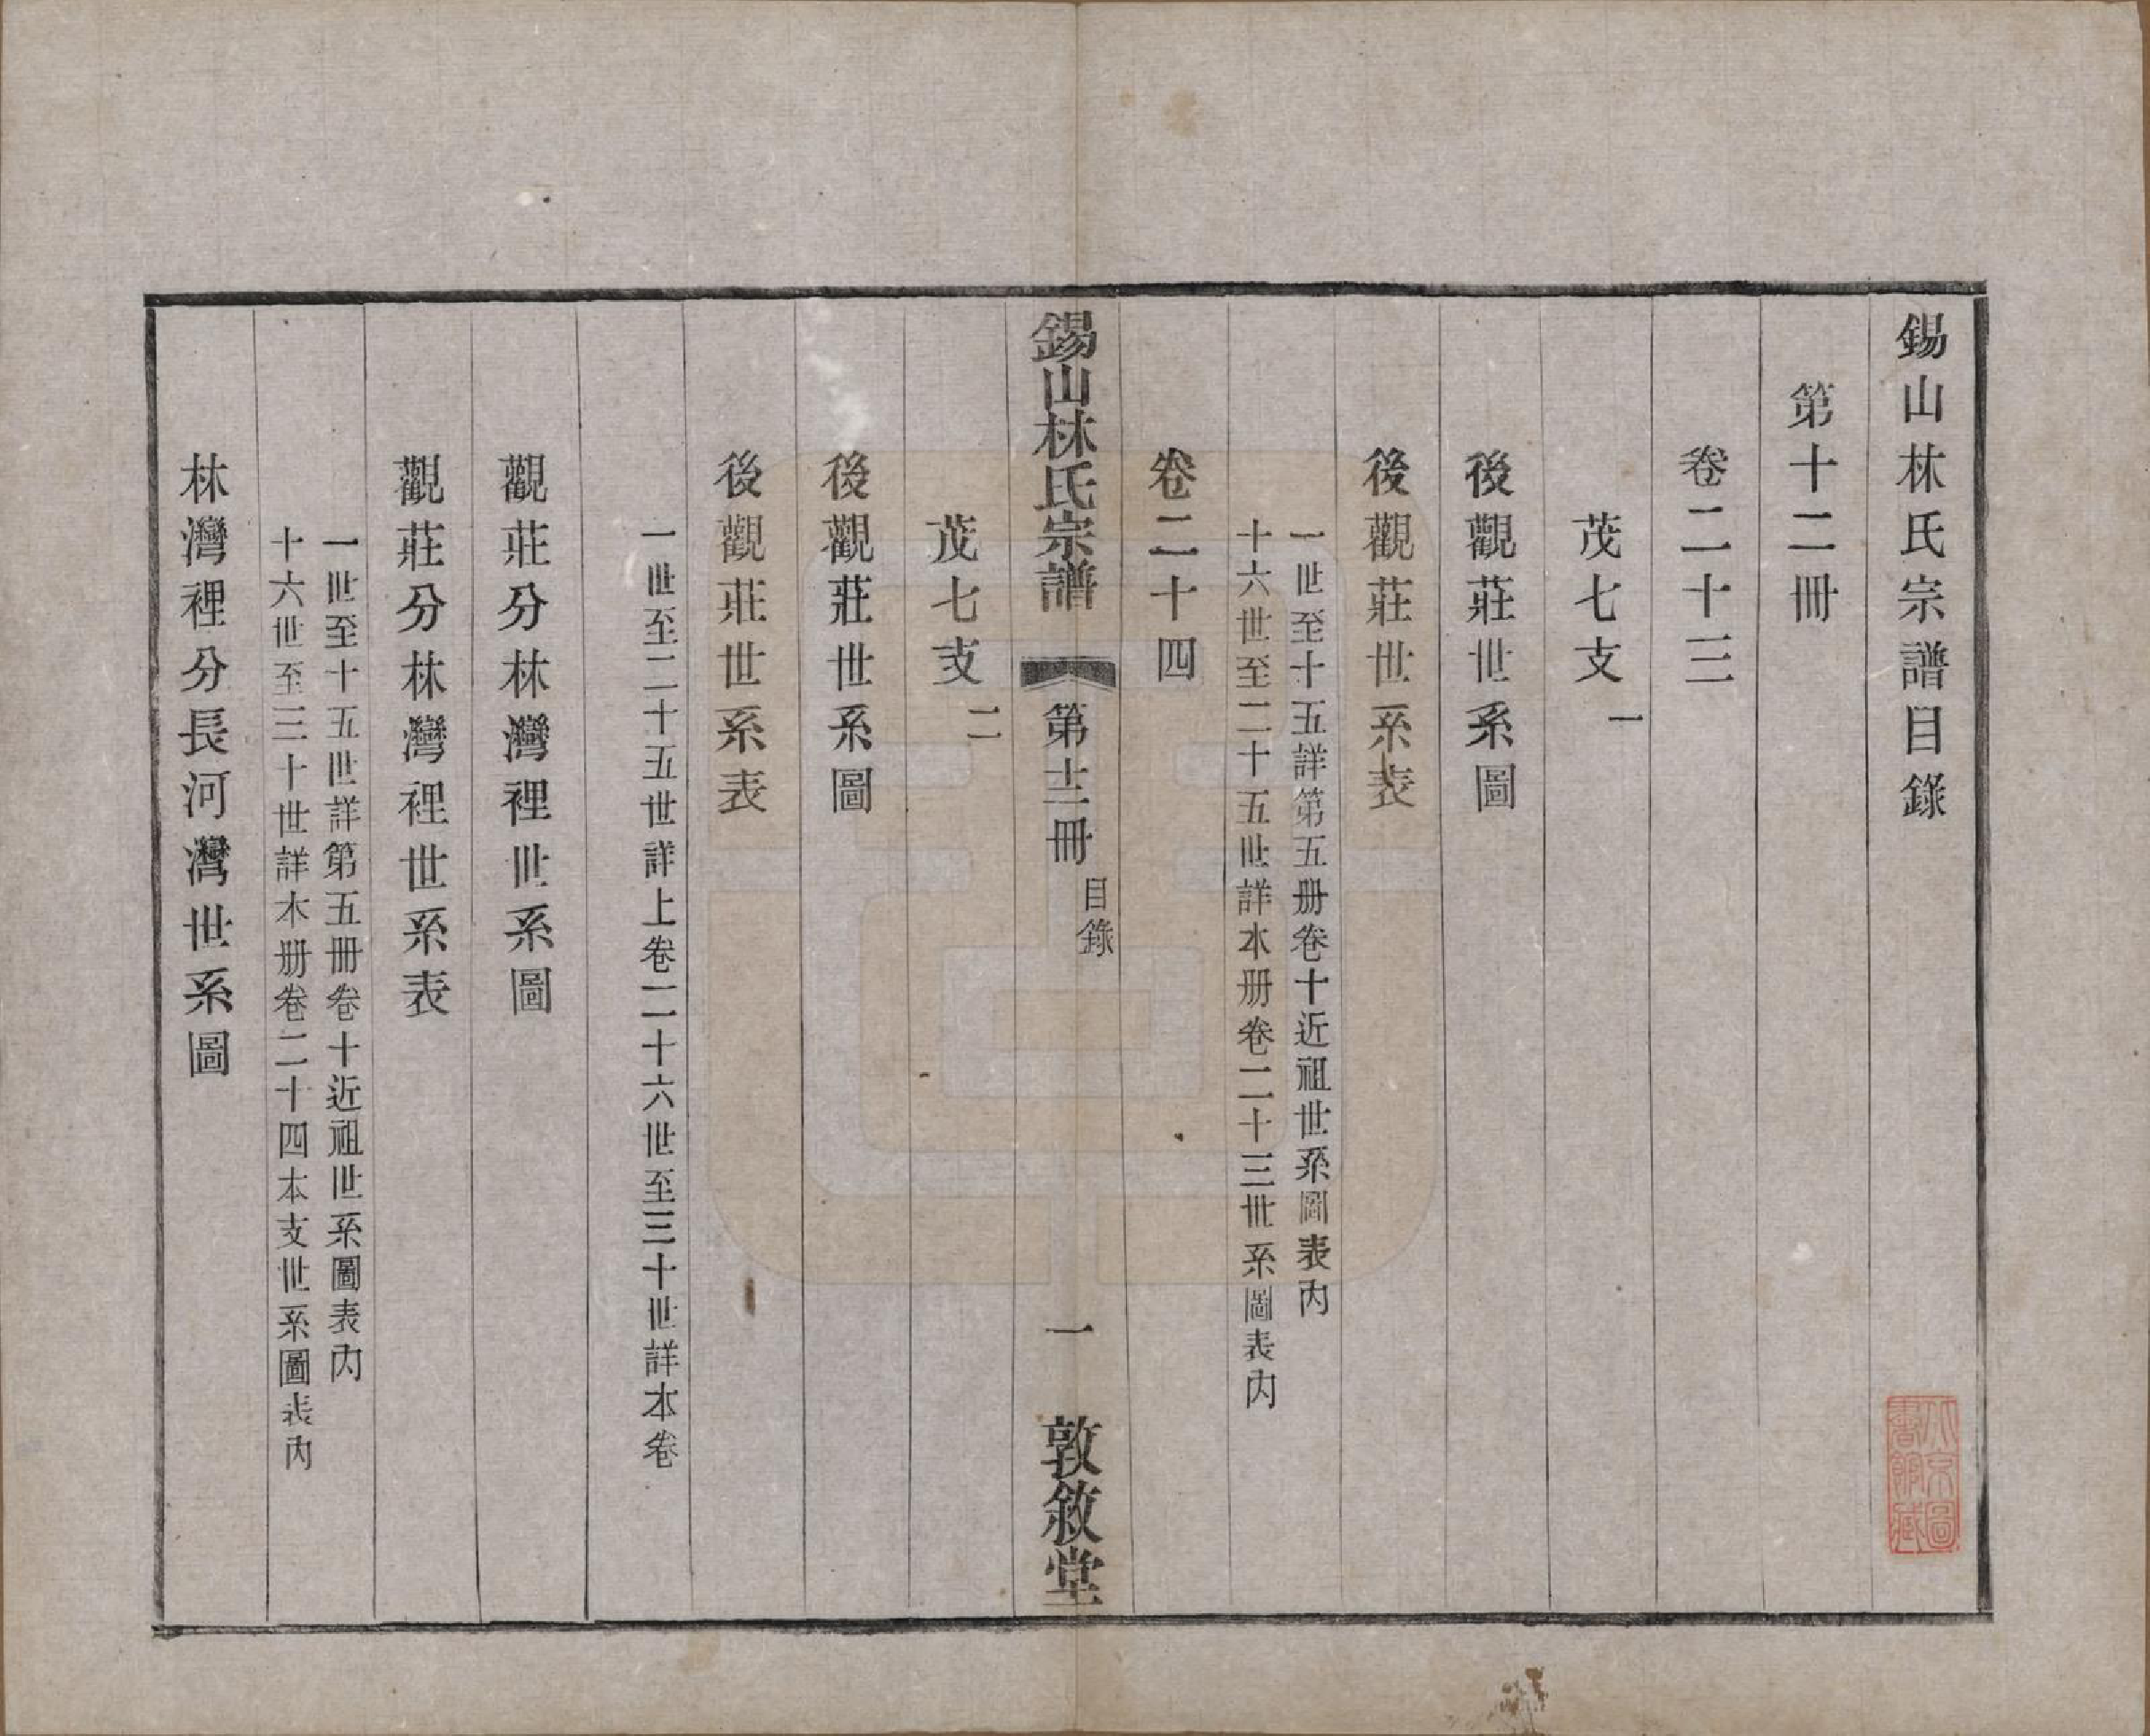 錫山林氏宗譜目錄
第十二冊
卷二十三
茂七支一
後觀莊世系圖
後觀莊世系表
一世至十五詳第五册卷十近祖世系圖表內
十六世至二十五世詳本册卷二十三世系圖表內
卷二十四
錫山林氏宗譜
第十二冊
目錄
一
敦敘堂
茂七支二
後觀莊世系圖
後觀莊世系表
一世至二十五世詳上卷二十六世至三十世詳本卷
觀莊分林灣裡世系圖
觀莊分林灣裡世系表
一世至十五世詳第五冊卷十近祖世系圖表內
十六世至三十世詳本册卷二十四本支世系圖表內
林灣裡分長河灣世系圖
北京圖書館藏